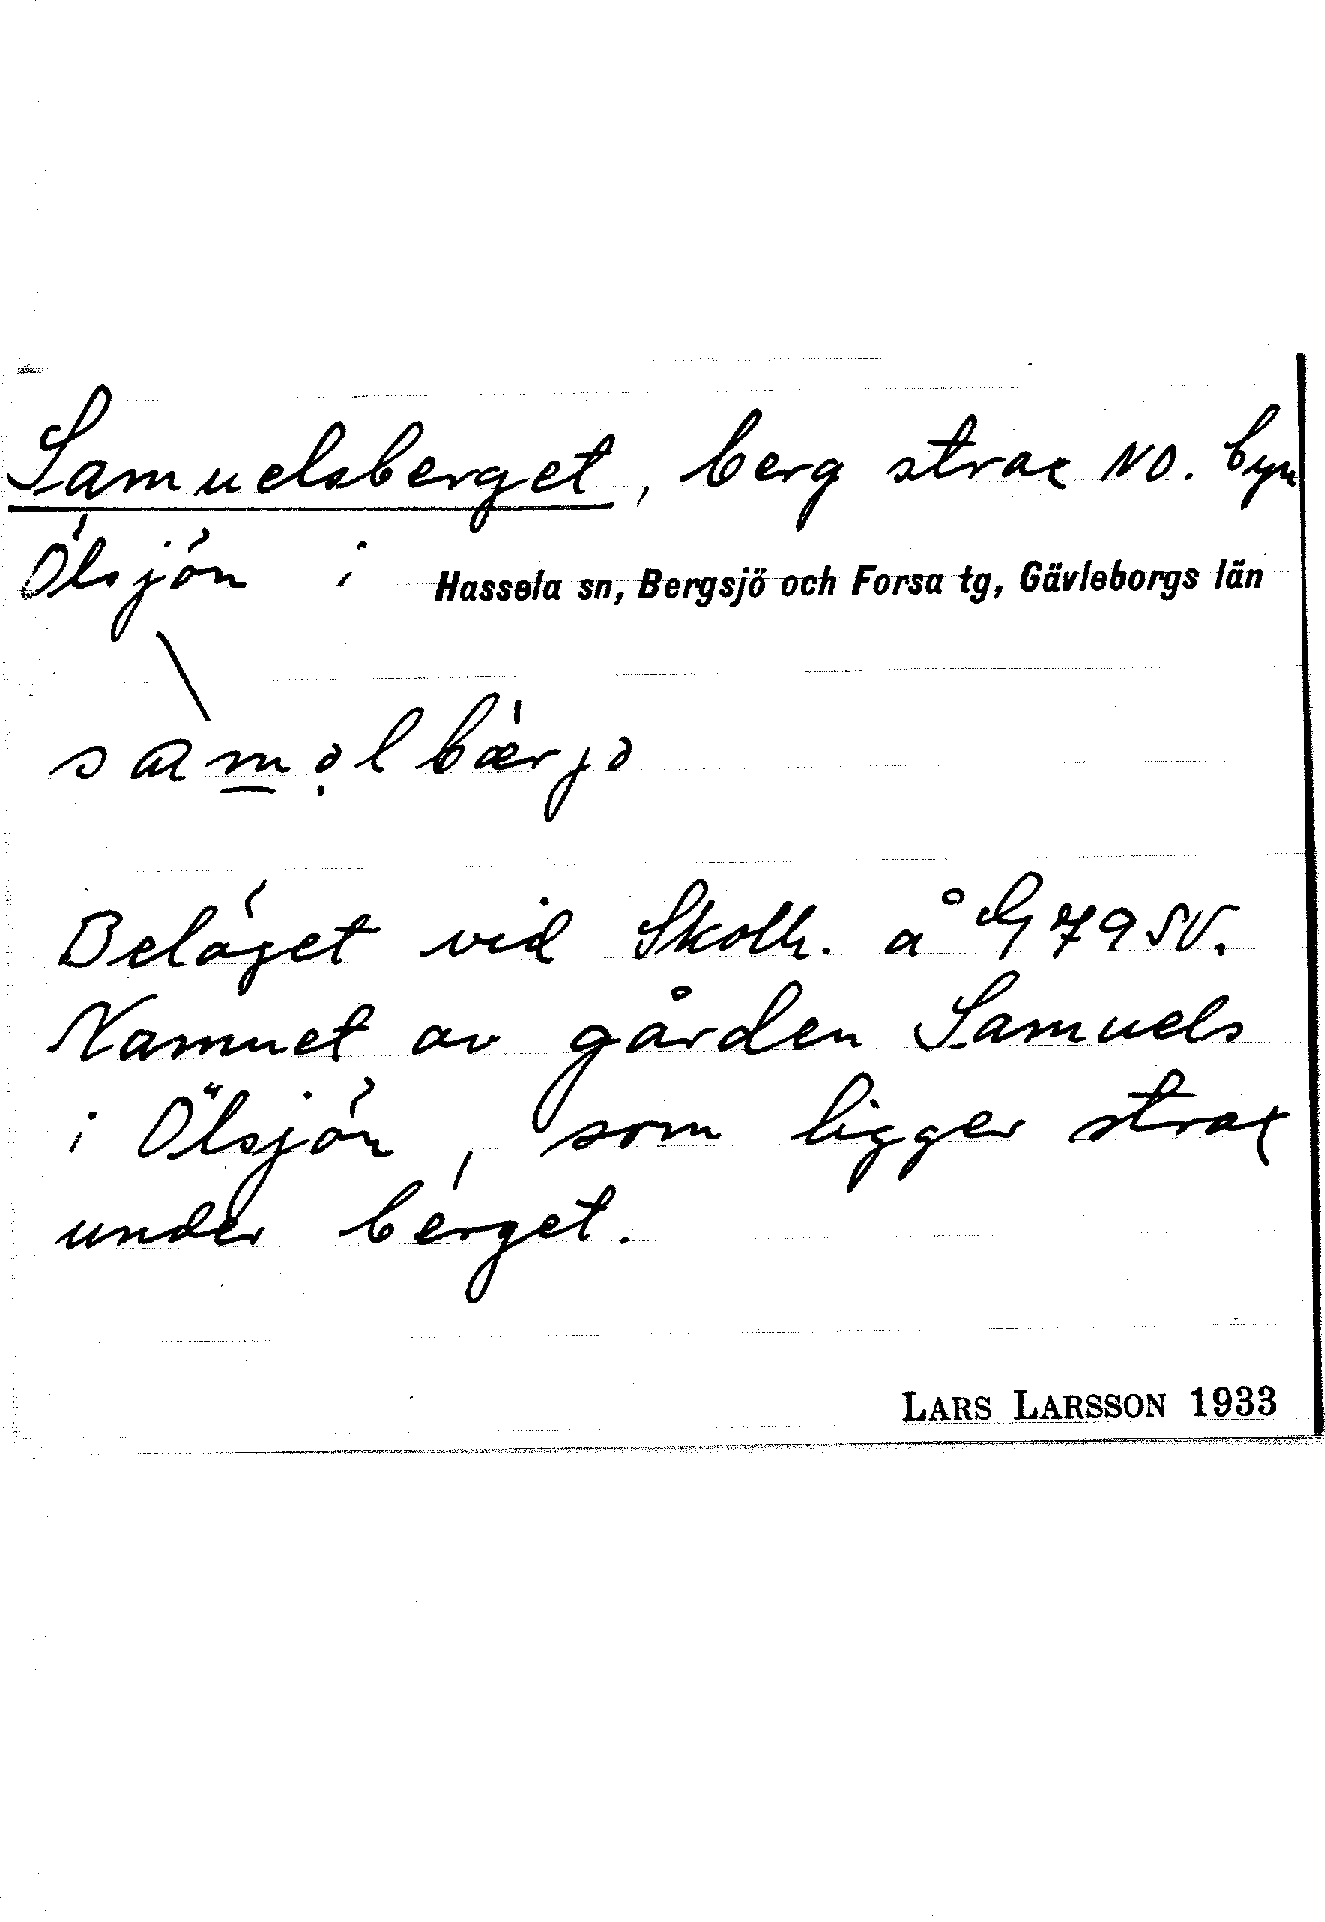 Samuelsberget, berg strax NO. byn
Ölsjön i Hassela sn, Bergsjö och Forsa tg, Gävleborgs län
Beläget vid Skolh. å G79SV.
Namnet av gården Samuels
i Ölsjön, som ligger strax
under berget.
LARS LARSSON 1933